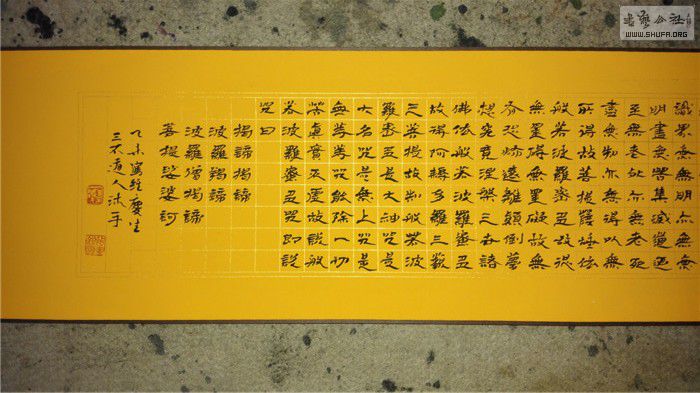 識界無無明亦無無
明盡無苦集滅道乃
至無老死亦無老死
盡無智亦無得以無
所得故菩提薩埵依
般若波羅蜜多故心
無罣礙無罣礙故無
有恐怖遠離顛倒夢
想究竟涅槃三世諸
佛依般若波羅蜜多
故得阿耨多羅三藐
三菩提故知般若波
羅蜜多是大神咒是
大明咒是無上咒是
無等等咒能除一切
苦真實不虛故說般
若波羅蜜多咒即說
咒曰
揭諦揭諦
波羅揭諦
波羅僧揭諦
菩提娑婆訶
乙未寫經慶生
三不道人沐手
WWW.SHUFA.ORG